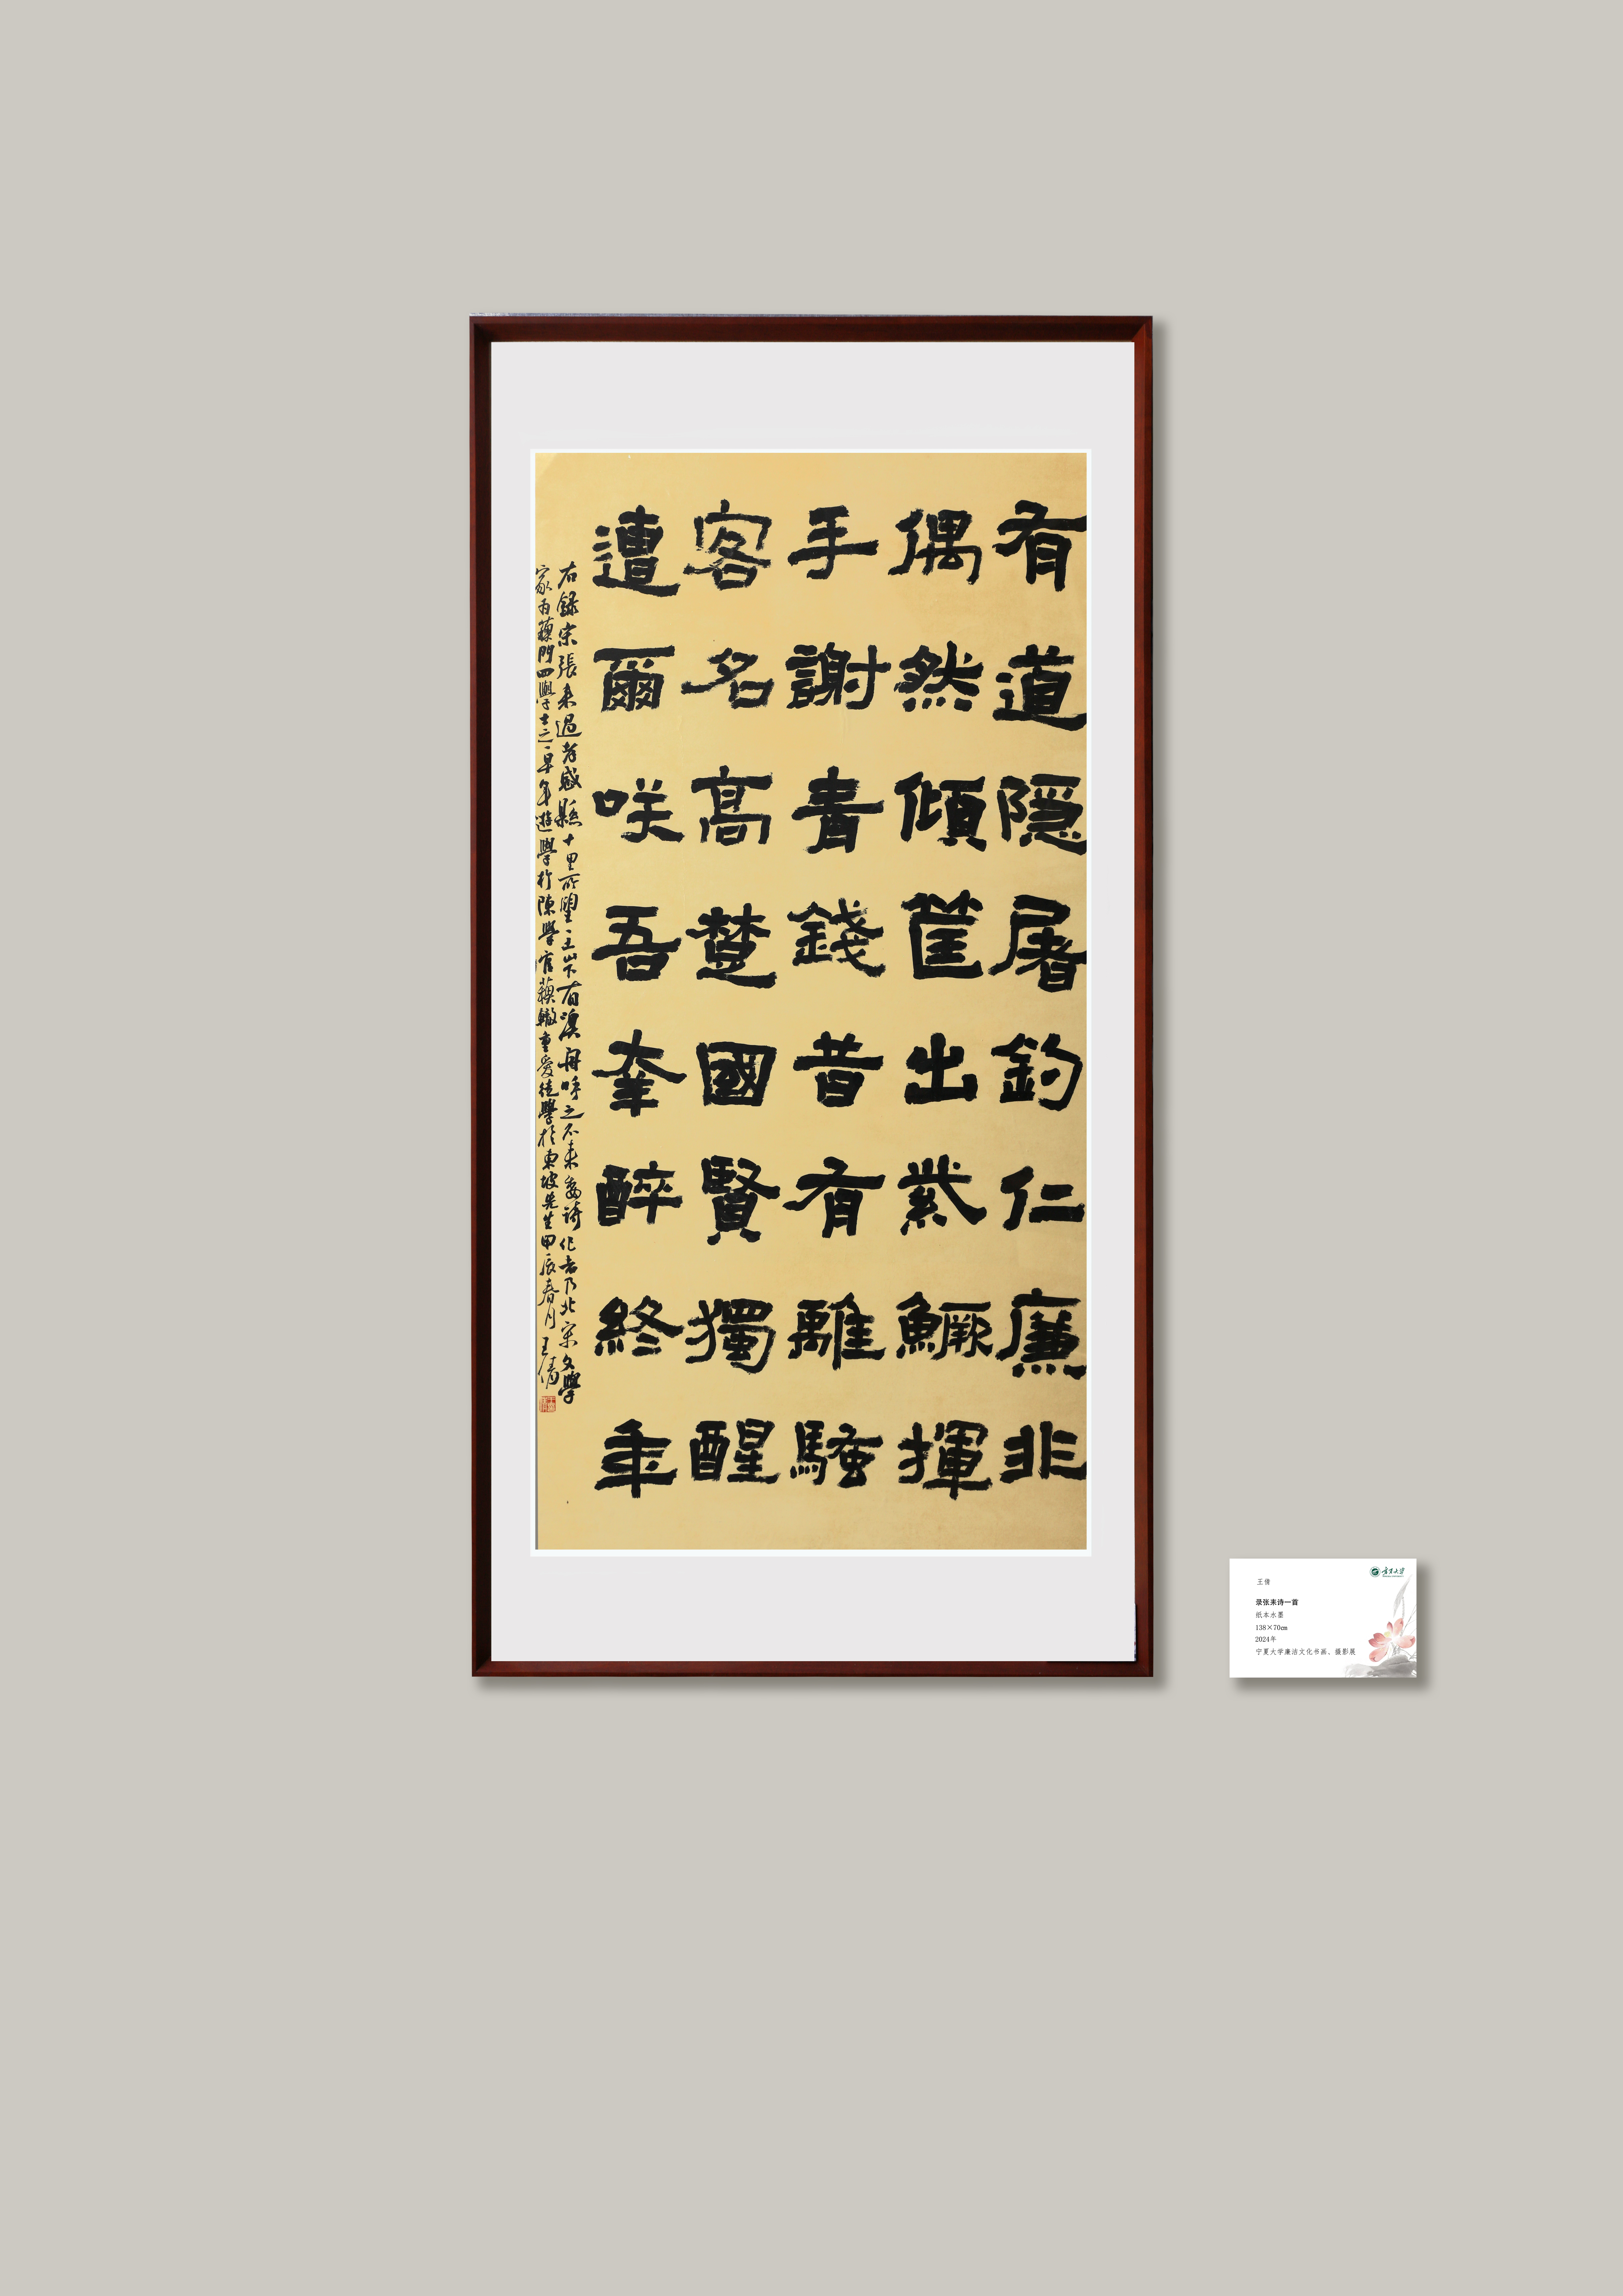 有道隱屠釣仁廉非
偶然傾筐出紫鱖揮
手謝青錢昔有離騷
客名高楚國賢獨醒
遭爾咲吾幸醉終年
右録宋張耒過孝感縣十里所望一土山下有漁舟呼之不来詩作者乃北宋文學
家為蘇門四學士之一早年遊學於陳學官蘇轍重愛從學於東坡先生甲辰春月王倩
宁夏大学
王倩
录张耒诗一首
纸本水墨
138×70cm
2024年
宁夏大学廉洁文化书画、摄影展